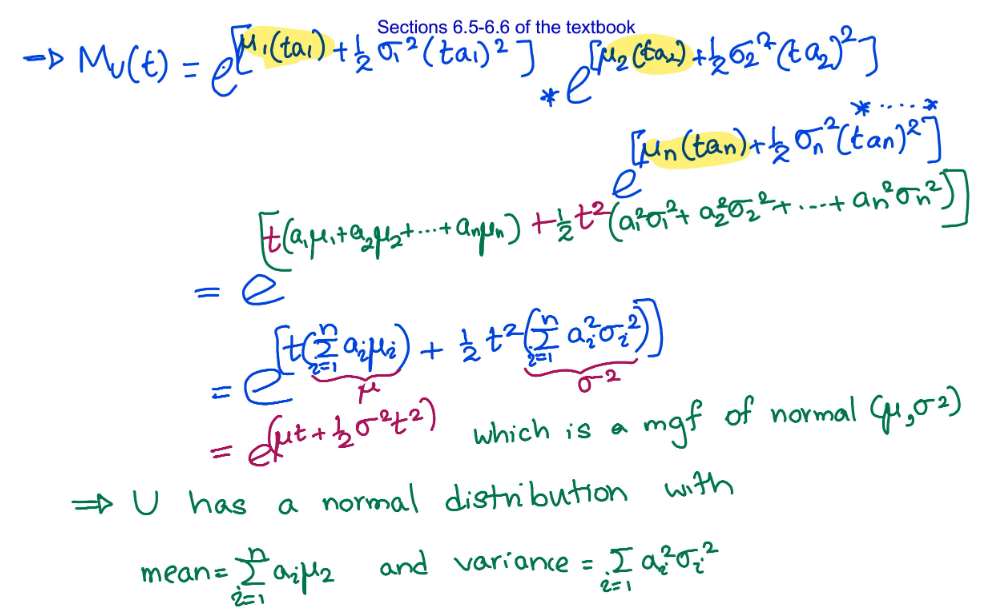 Sections 6.5-6.6 of the textbook
⇒ M_U(t) = e^[μ₁(ta₁) + ½ σ₁²(ta₁)²] * e^[μ₂(ta₂) + ½ σ₂²(ta₂)²]
* ..... *
e^[μₙ(taₙ) + ½ σₙ²(taₙ)²]
= e^[t(a₁μ₁ + a₂μ₂ + ... + aₙμₙ) + ½ t²(a₁²σ₁² + a₂²σ₂² + ... + aₙ²σₙ²)]
= e^[t(Σᵢ₌₁ⁿ aᵢμᵢ) + ½ t²(Σᵢ₌₁ⁿ aᵢ²σᵢ²)]
μ σ²
= e^(μt + ½ σ²t²) which is a mgf of normal (μ, σ²)
⇒ U has a normal distribution with
mean = Σᵢ₌₁ⁿ aᵢμ₂ and variance = Σᵢ₌₁ aᵢ²σᵢ²